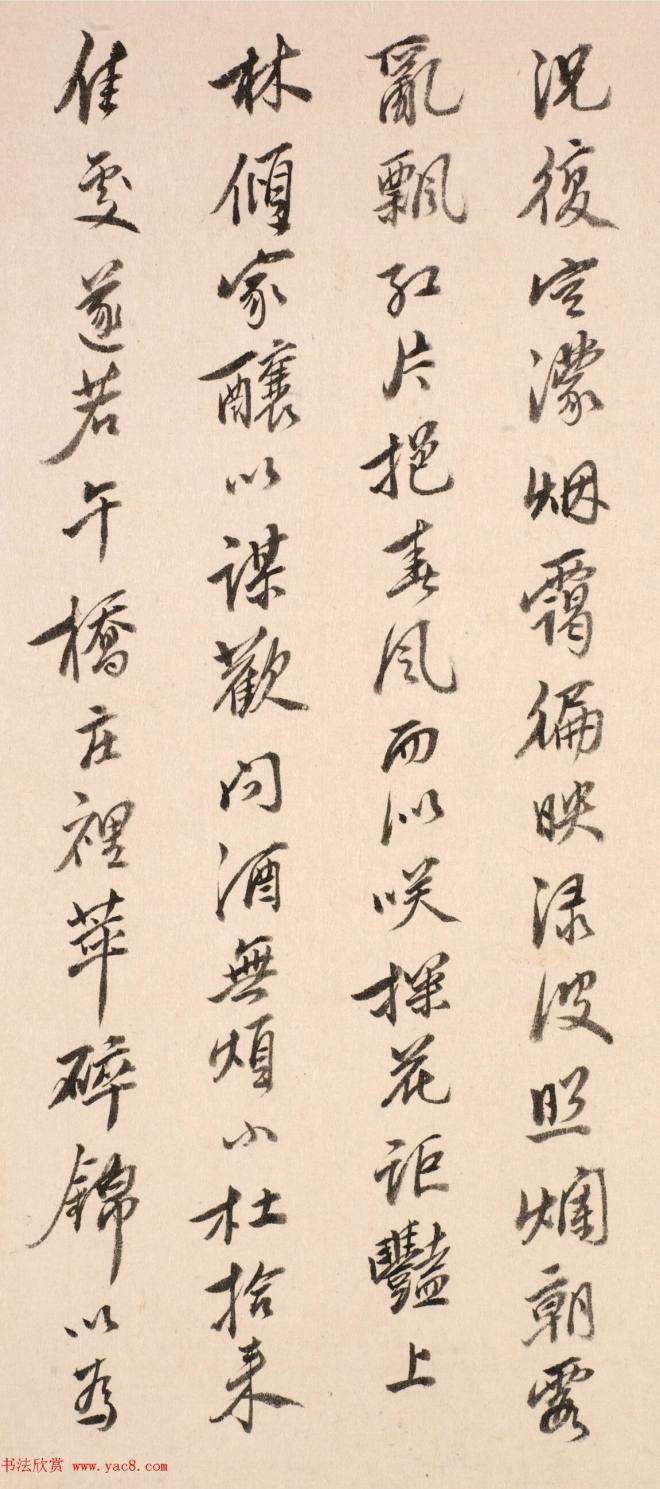 況復空濛烟靄徧映渌波照爛朝霞
亂飄紅片挹春風而似咲探花詎豔上
林傾家釀以謀歡問酒無煩小杜拾来
佳處遂若午橋庄裡萃碎錦以為
书法欣赏 www.yac8.com